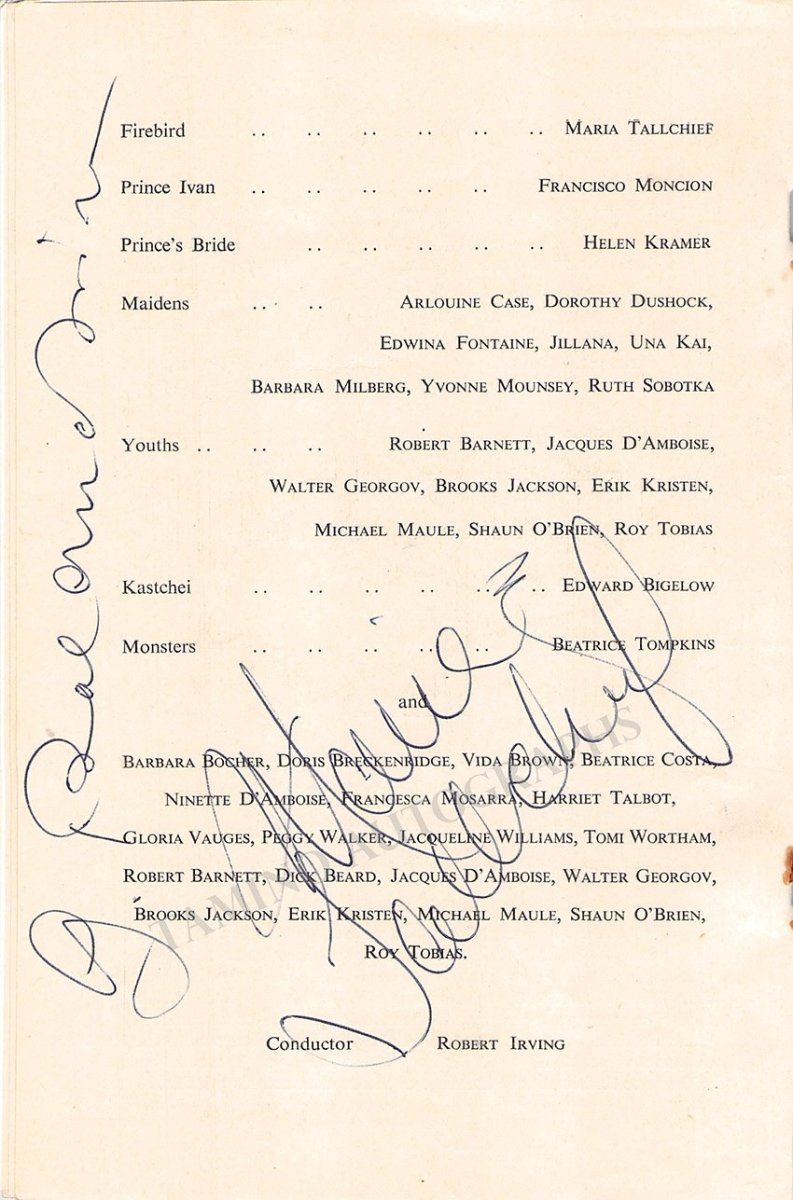 Firebird .. .. .. .. .. .. MARIA TALLCHIEF
Prince Ivan .. .. .. .. .. FRANCISCO MONCION
Prince's Bride .. .. .. .. .. HELEN KRAMER
Maidens .. .. ARLOUINE CASE, DOROTHY DUSHOCK,
EDWINA FONTAINE, JILLANA, UNA KAI,
BARBARA MILBERG, YVONNE MOUNSEY, RUTH SOBOTKA
Youths .. .. .. ROBERT BARNETT, JACQUES D'AMBOISE,
WALTER GEORGOV, BROOKS JACKSON, ERIK KRISTEN,
MICHAEL MAULE, SHAUN O'BRIEN, ROY TOBIAS
Kastchei .. .. .. .. .. .. EDWARD BIGELOW
Monsters .. .. .. .. .. BEATRICE TOMPKINS
and
BARBARA BOCHER, DORIS BRECKENRIDGE, VIDA BROWN, BEATRICE COSTA,
NINETTE D'AMBOISE, FRANCESCA MOSARRA, HARRIET TALBOT,
GLORIA VAUGES, PEGGY WALKER, JACQUELINE WILLIAMS, TOMI WORTHAM,
ROBERT BARNETT, DICK BEARD, JACQUES D'AMBOISE, WALTER GEORGOV,
BROOKS JACKSON, ERIK KRISTEN, MICHAEL MAULE, SHAUN O'BRIEN,
ROY TOBIAS.
Conductor ROBERT IRVING
G. Balanchine
Maria Tallchief
TAMINO AUTOGRAPHS